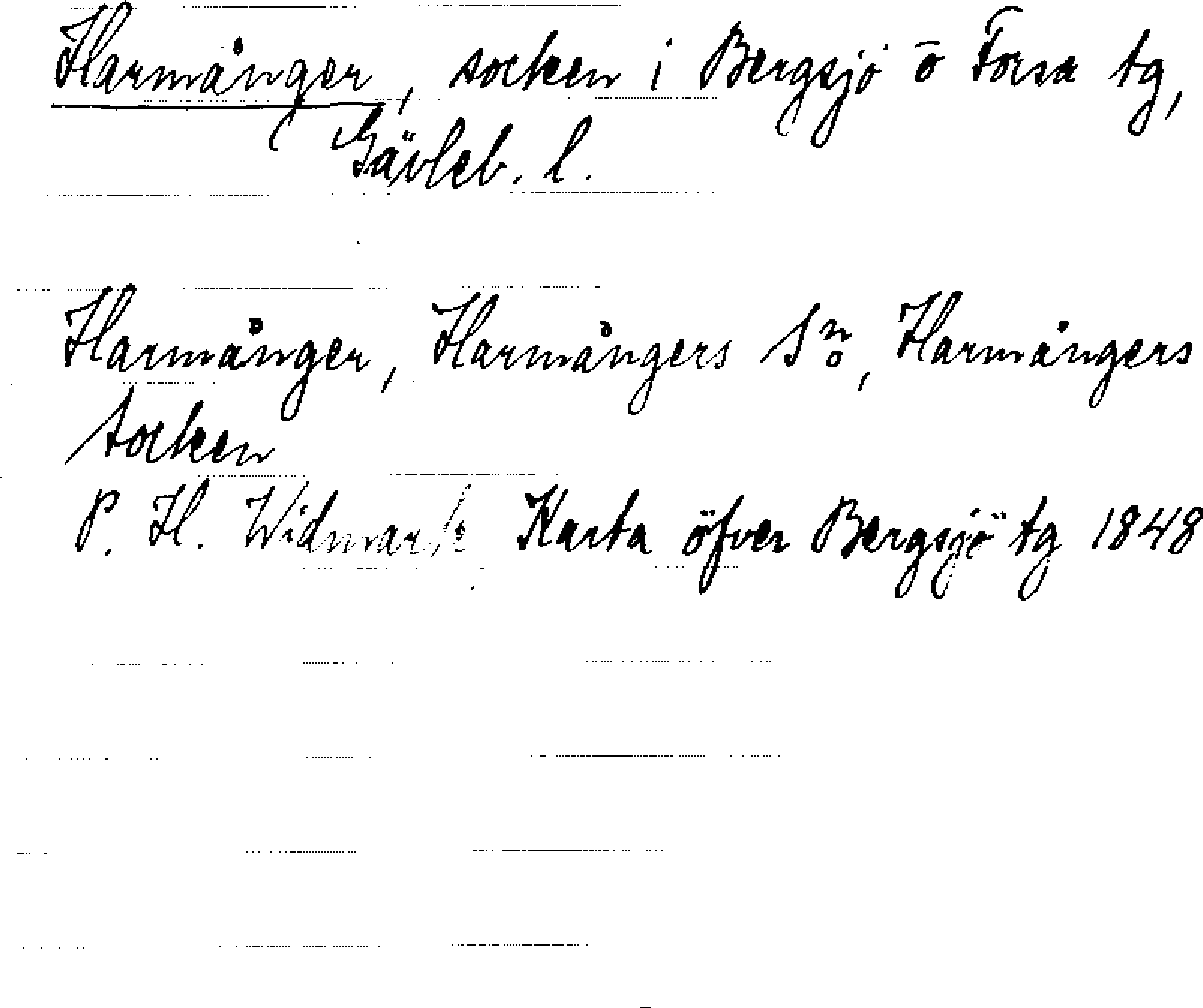 Harmånger, socken i Bergsjö o Forsa tg,
Gävleb. l.
Harmånger, Harmångers Sn, Harmångers
socken
P. H. Widmark Karta öfver Bergsjö tg 1848